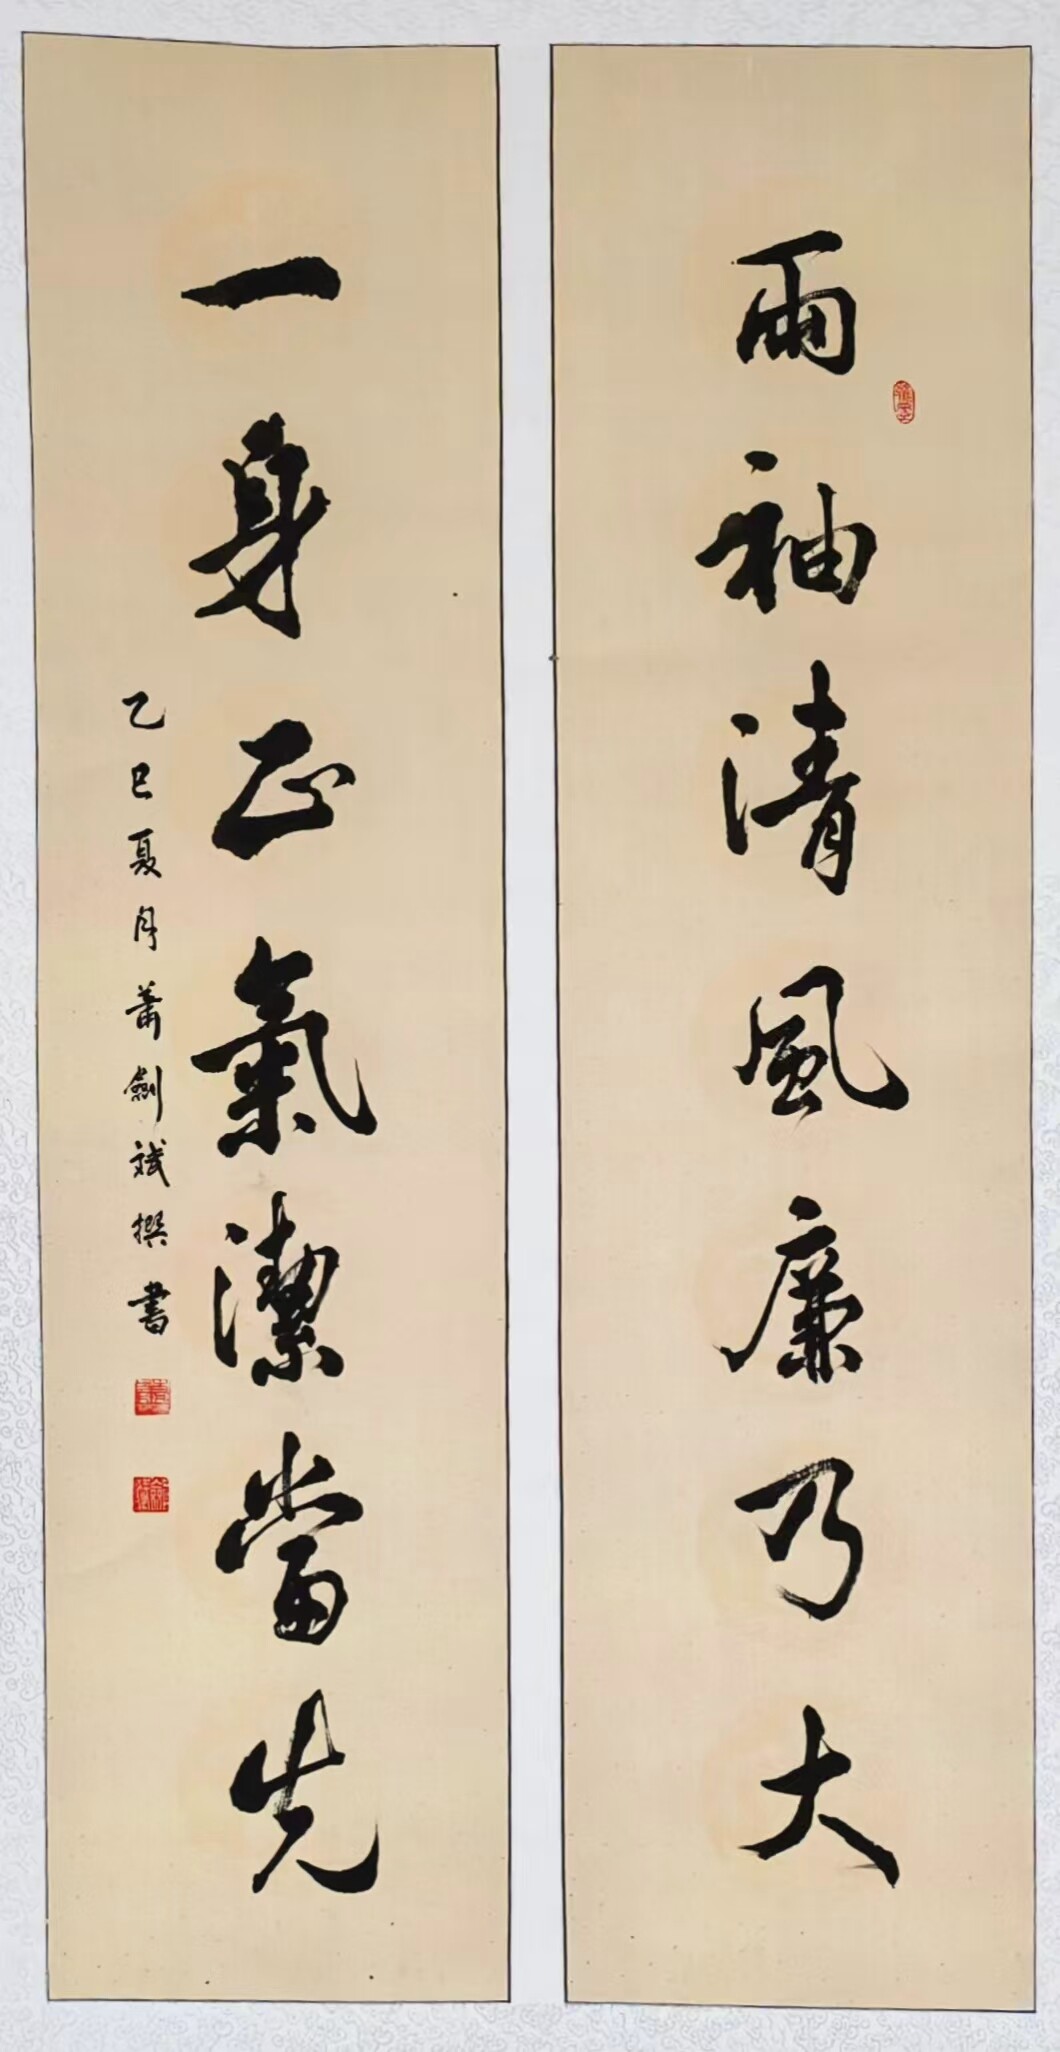 两袖清風廉乃大
一身正氣潔當先
乙巳夏月蕭劍斌撰書